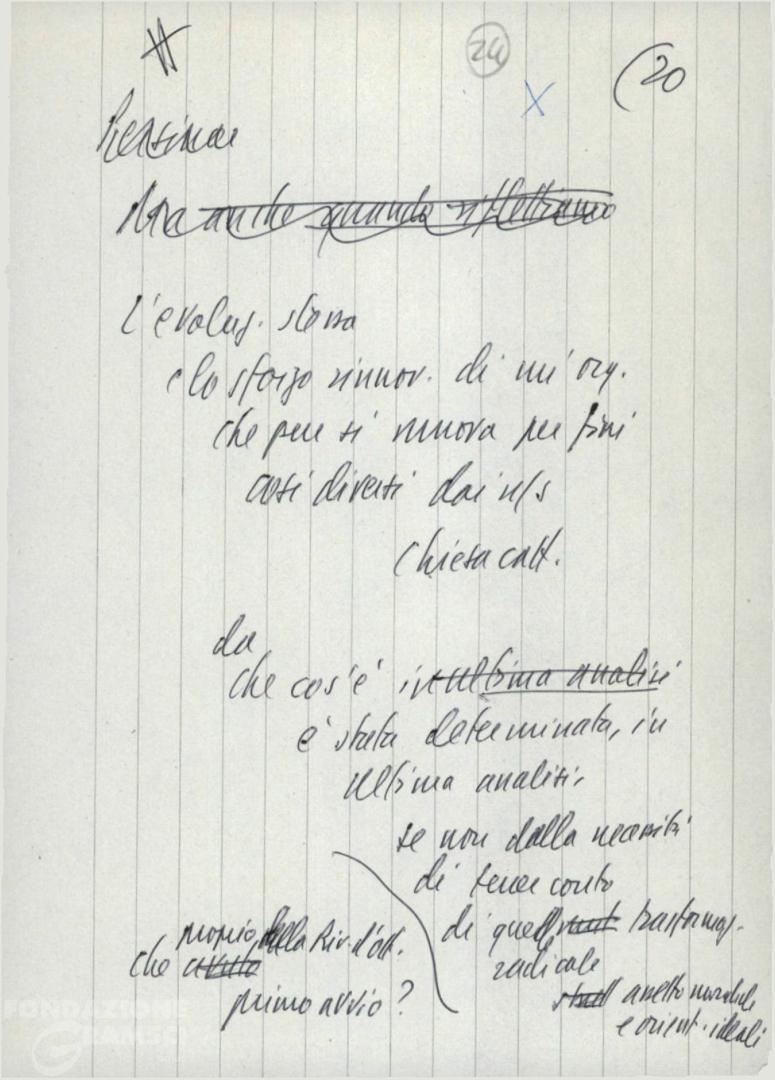 24
X
(20
Persino
Ma anche quando riflettiamo
L'evoluz. stessa
e lo sforzo rinnov. di un'org.
che pure si muova per fini
così diversi dai n/s
Chiesa catt.
da
che cos'è in ultima analisi
è stata determinata, in
ultima analisi,
se non dalla necessità
di tener conto
di quell trasformaz.
radicale
assetto mondiale
e orient. ideali
che proprio dalla Riv. d'ott.
avuto
primo avvio?
FONDAZIONE
GRAMSCI